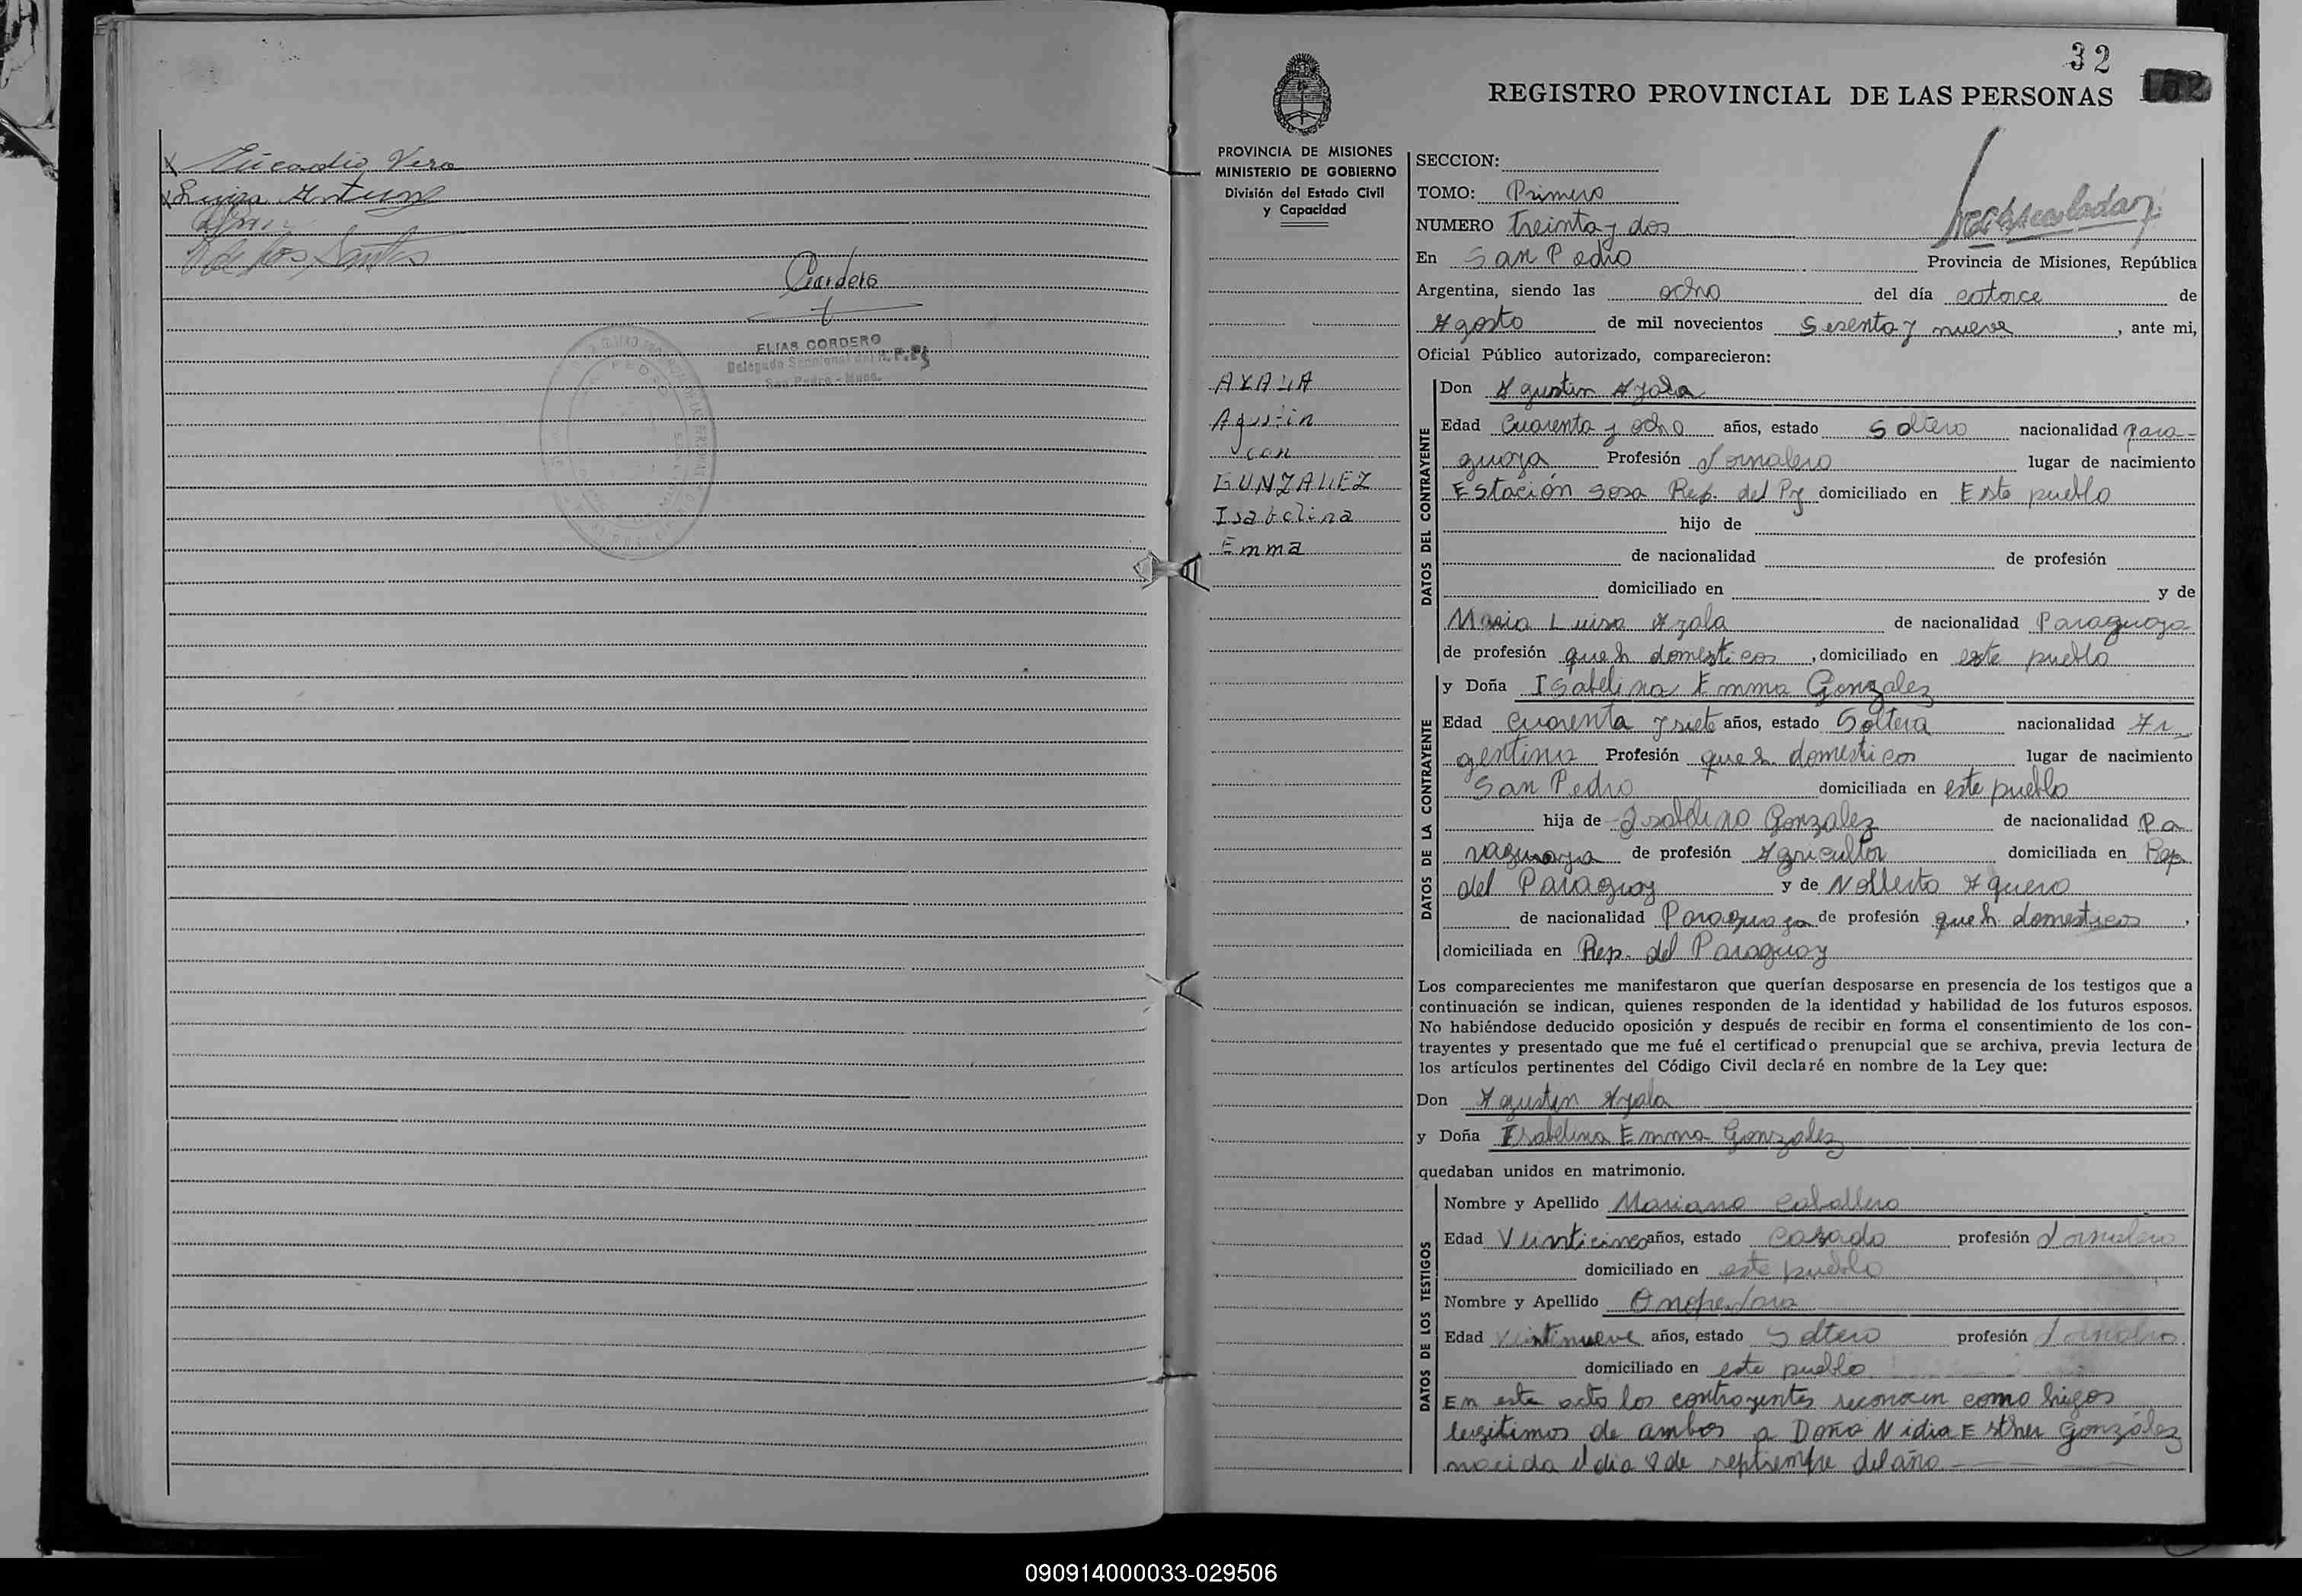 Lucadio Vera
Luisa Antune
de los Santos
Cordero
ELIAS CORDERO
Delegado Seccional del R. P. P.
San Pedro - Mnes.
PEDRO
32
REGISTRO PROVINCIAL DE LAS PERSONAS
152
PROVINCIA DE MISIONES
MINISTERIO DE GOBIERNO
División del Estado Civil
y Capacidad
AYALA
Agustin
con
GUNZALEZ
Isabelina
Emma
SECCION:
TOMO: Primero
NUMERO treinta y dos
En San Pedro Provincia de Misiones, República
Argentina, siendo las ocho del día catorce de
Agosto de mil novecientos Sesenta y nueve, ante mi,
Oficial Público autorizado, comparecieron:
DATOS DEL CONTRAYENTE
Don Agustin Ayala
Edad Cuarenta y ocho años, estado Soltero nacionalidad para-
guaya Profesión Jornalero lugar de nacimiento
Estación Sosa Rep. del Py domiciliado en Este pueblo
hijo de
de nacionalidad de profesión
domiciliado en y de
Maria Luisa Ayala de nacionalidad Paraguaya
de profesión queh domesticos, domiciliado en este pueblo
DATOS DE LA CONTRAYENTE
y Doña Isabelina Emma Gonzalez
Edad Cuarenta y siete años, estado Soltera nacionalidad Ar
gentina Profesión queh. domesticos lugar de nacimiento
San Pedro domiciliada en este pueblo
hija de Isabelino Gonzalez de nacionalidad Pa
raguaya de profesión Agricultor domiciliada en Rep
del Paraguay y de Nolberta Aguero
de nacionalidad Paraguaya de profesión queh. domesticos,
domiciliada en Rep. del Paraguay
Los comparecientes me manifestaron que querían desposarse en presencia de los testigos que a
continuación se indican, quienes responden de la identidad y habilidad de los futuros esposos.
No habiéndose deducido oposición y después de recibir en forma el consentimiento de los con-
trayentes y presentado que me fué el certificado prenupcial que se archiva, previa lectura de
los artículos pertinentes del Código Civil declaré en nombre de la Ley que:
Don Agustin Ayala
y Doña Isabelina Emma Gonzalez
quedaban unidos en matrimonio.
DATOS DE LOS TESTIGOS
Nombre y Apellido Mariano Caballero
Edad Veinticinco años, estado Casado profesión Jornalero
domiciliado en este pueblo
Nombre y Apellido
Edad Veintinueve años, estado Soltero profesión Jornalero
domiciliado en este pueblo
En este acto los contrayentes reconocen como hijos
legitimos de ambos a Doña Nidia Esther González
nacida el dia 8 de septiembre del año
090914000033-029506